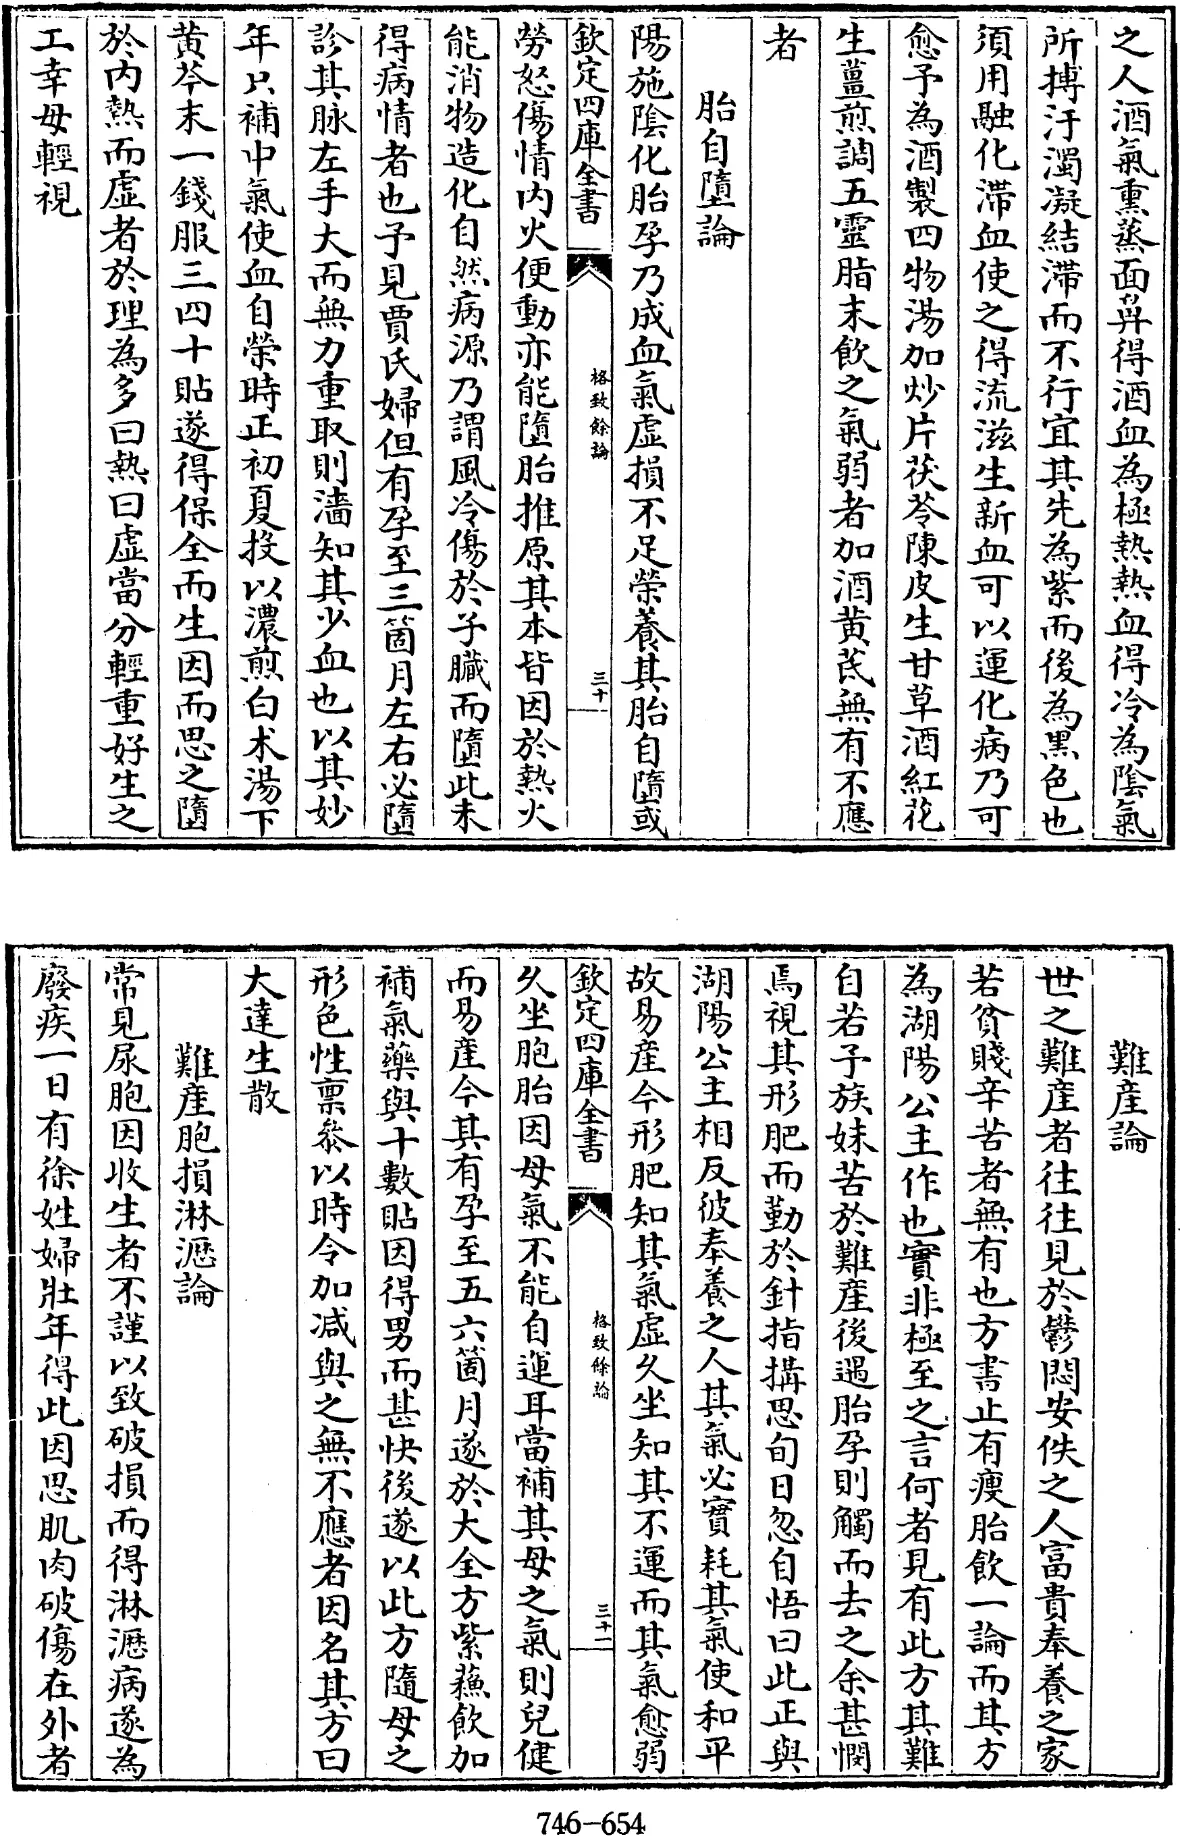 之人酒氣熏蒸面鼻得酒血為極熱熱血得冷為陰氣
所搏汙濁凝結滯而不行宜其先為紫而後為黑色也
須用融化滯血使之得流滋生新血可以運化病乃可
愈予為酒製四物湯加炒片茯苓陳皮生甘草酒紅花
生薑煎調五靈脂末飲之氣弱者加酒黄芪無有不應
者
胎自墮論
陽施陰化胎孕乃成血氣虛損不足榮養其胎自墮或
欽定四庫全書
格致餘論
三十
勞怒傷情内火便動亦能墮胎推原其本皆因於熱火
能消物造化自然病源乃謂風冷傷於子臟而墮此未
得病情者也予見賈氏婦但有孕至三箇月左右必墮
診其脉左手大而無力重取則濇知其少血也以其妙
年只補中氣使血自榮時正初夏投以濃煎白术湯下
黄芩末一錢服三四十貼遂得保全而生因而思之墮
於内熱而虛者於理為多曰熱曰虛當分輕重好生之
工幸毋輕視
難産論
世之難産者往往見於鬱悶安佚之人富貴奉養之家
若貧賤辛苦者無有也方書止有瘦胎飲一論而其方
為湖陽公主作也實非極至之言何者見有此方其難
自若予族妹苦於難産後遇胎孕則觸而去之余甚憫
焉視其形肥而勤於針指搆思旬日忽自悟曰此正與
湖陽公主相反彼奉養之人其氣必實耗其氣使和平
故易産今形肥知其氣虛久坐知其不運而其氣愈弱
欽定四庫全書
格致餘論
三十一
久坐胞胎因母氣不能自運耳當補其母之氣則兒健
而易産今其有孕至五六箇月遂於大全方紫蘓飲加
補氣藥與十數貼因得男而甚快後遂以此方隨母之
形色性稟叅以時令加减與之無不應者因名其方曰
大達生散
難産胞損淋瀝論
常見尿胞因收生者不謹以致破損而得淋瀝病遂為
廢疾一日有徐姓婦壯年得此因思肌肉破傷在外者
746-654